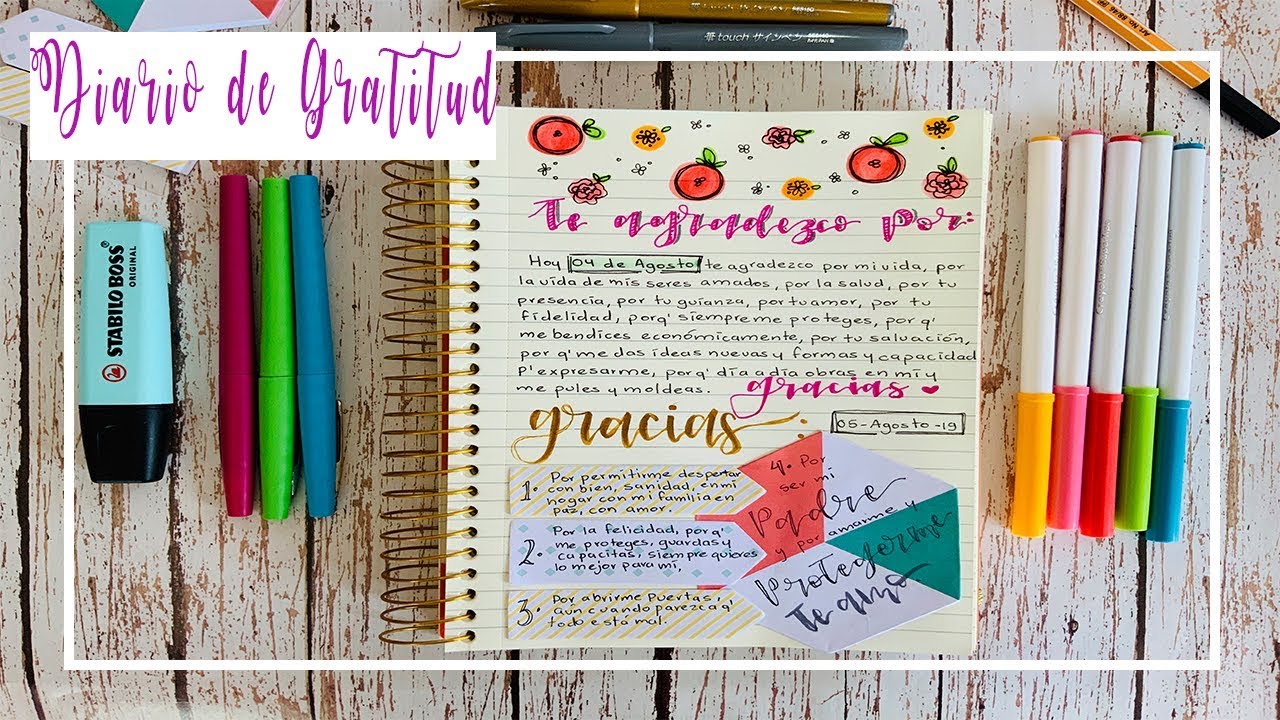 Diario de Gratitud
筆touch サインペン
STABILO BOSS
ORIGINAL
Te agradezco por:
Hoy 04 de Agosto te agradezco por mi vida, por
la vida de mis seres amados, por la salud, por tu
presencia, por tu guianza, por tu amor, por tu
fidelidad, porq' siempre me proteges, por q'
me bendices económicamente, por tu salvación,
por q' me das ideas nuevas y formas y capacidad
p' expresarme, por q' día a día obras en mí y
me pules y moldeas. gracias
gracias :
05-Agosto-19
1. Por permitirme despertar
con bien, sanidad, en mi
hogar con mi familia en
paz, con amor.
2. Por la felicidad, por q'
me proteges, guardas y
capacitas, siempre quieres
lo mejor para mi,
3. Por abrirme puertas,
aún cuando parezca q'
todo está mal.
4. Por
ser mi
Padre
y por amarme y
protegerme
Te amo